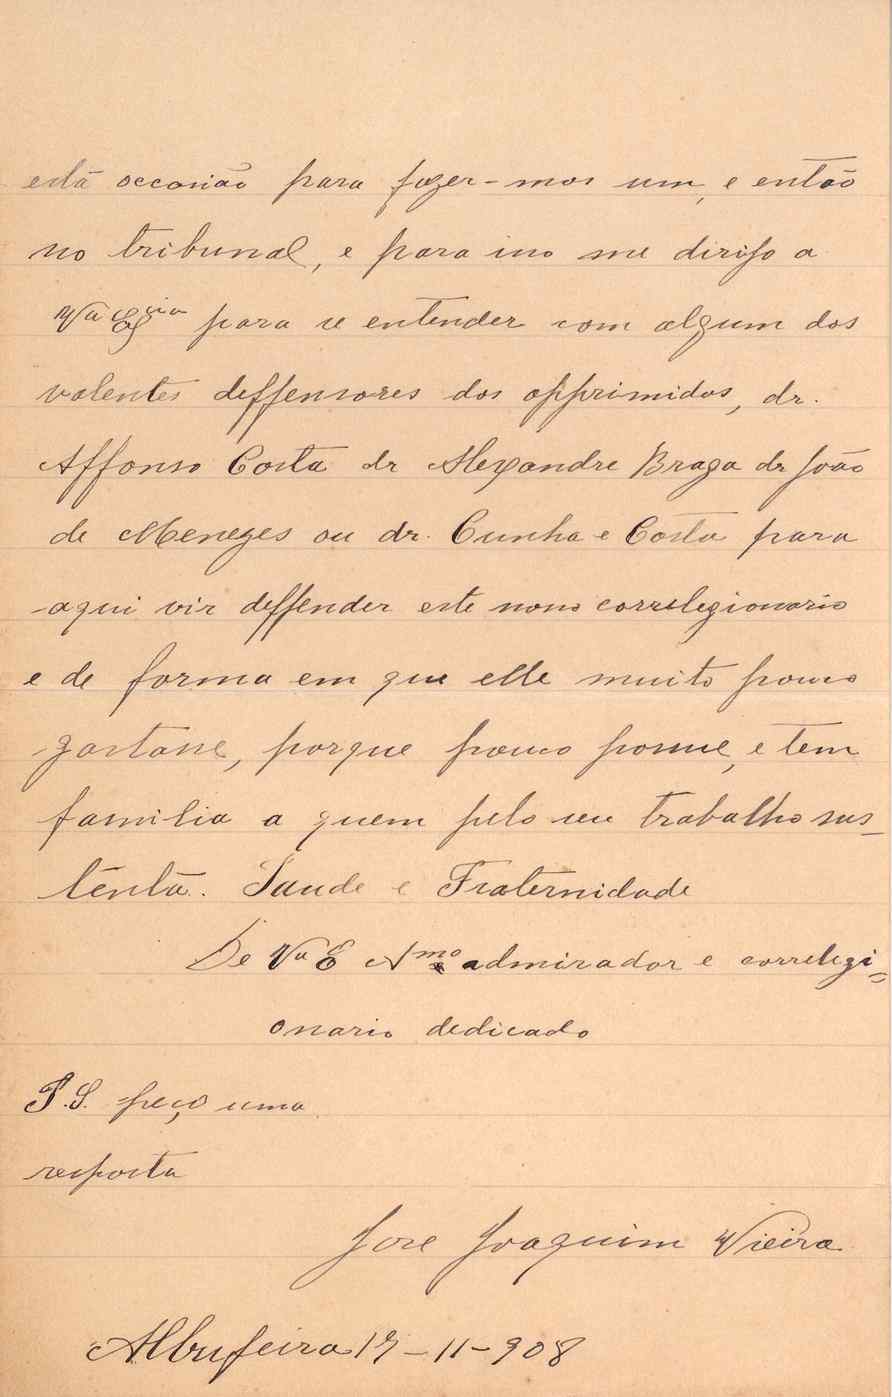 está occasião para fazer-mos um, e então
no tribunal, e para isso me dirijo a
Vª Exª para se entender com algum dos
valentes deffensores dos opprimidos, dr.
Affonso Costa dr Alexandre Braga dr João
de Menezes ou dr. Cunha e Costa para
aqui vir deffender este nosso correlegionario
e de forma em que elle muito pouco
gastasse, porque pouco possue, e tem
familia a quem pelo seu trabalho sus-
tenta. Saude e Fraternidade
De Vª E Amº admirador e correlegi=
onario dedicado
P.S. peço uma
resposta
José Joaquim Vieira
Albufeira -11-908